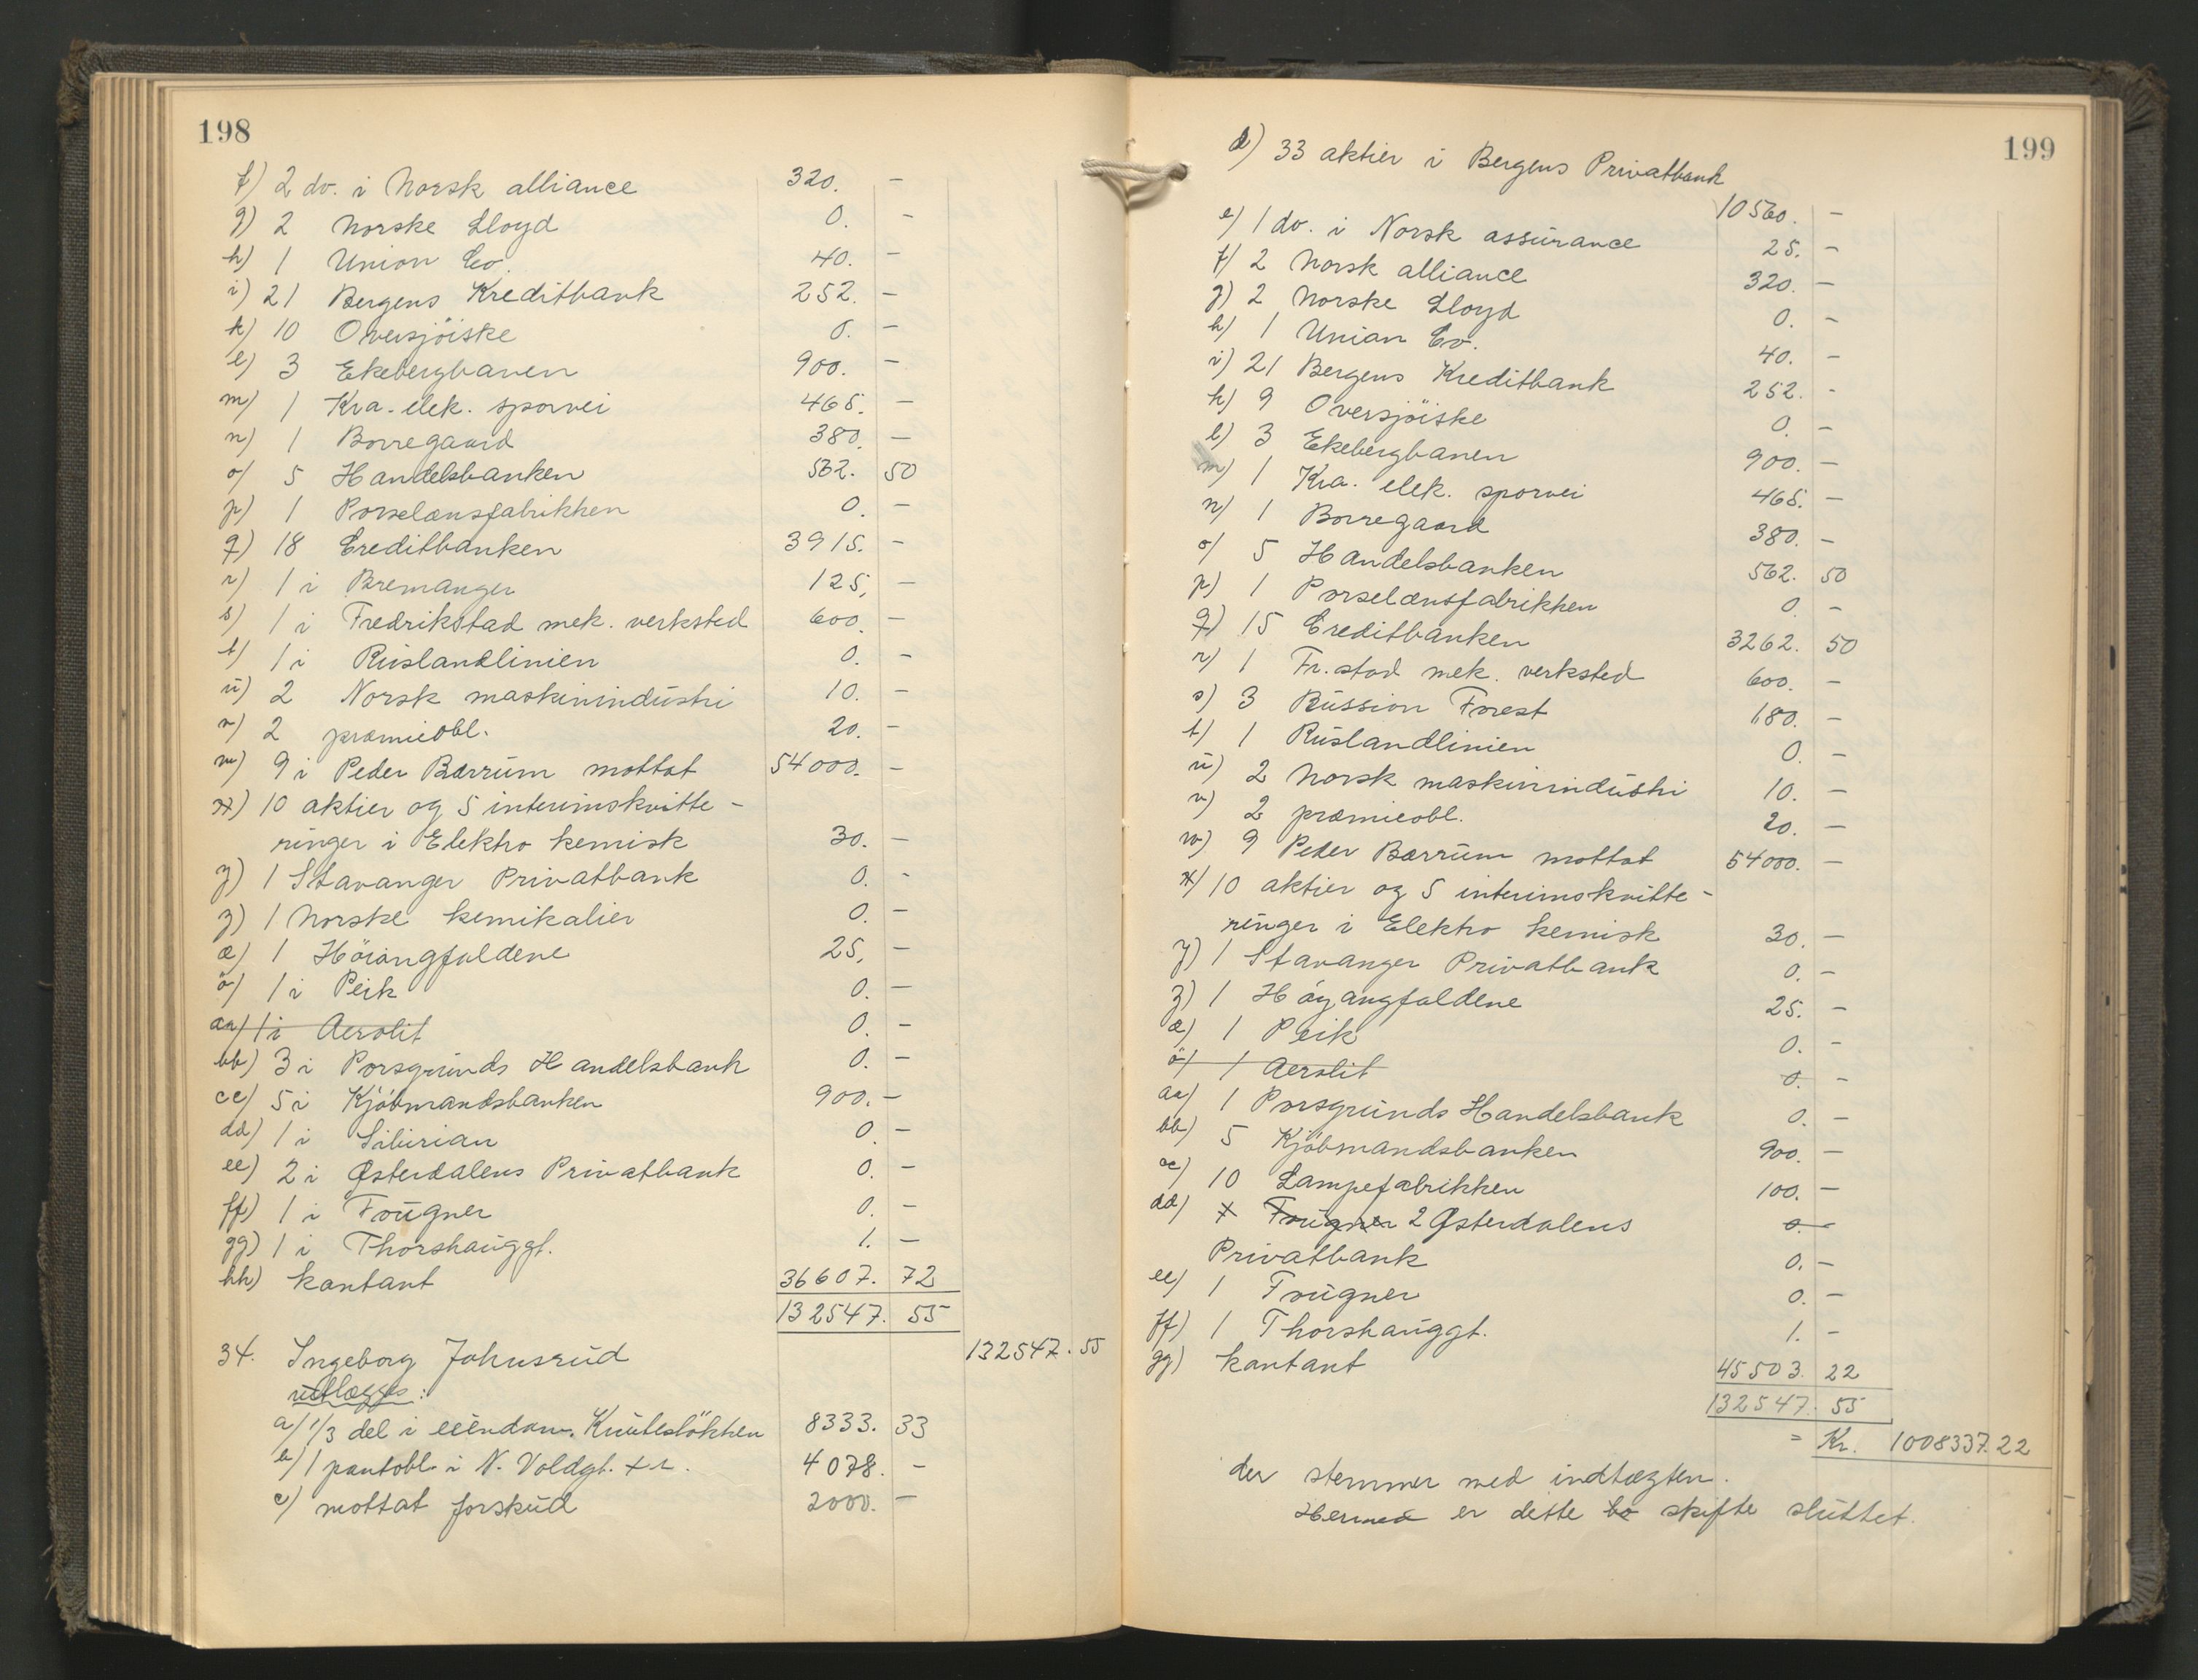 198
f) 2 do. i Norsk alliance 320. -
g) 2 Norske Lloyd 0. -
h) 1 Union Co. 40. -
i) 21 Bergens Kreditbank 252. -
k) 10 Oversjöiske 0. -
l) 3 Ekebergbanen 900. -
m) 1 Kra. elek. sporvei 465. -
n) 1 Borregaard 380. -
o) 5 Handelsbanken 562. 50
p) 1 Porselænsfabrikken 0. -
q) 18 Creditbanken 3915. -
r) 1 i Bremanger 125, -
s) 1 i Fredrikstad mek. verksted 600. -
t) 1 i Ruslandlinien 0. -
u) 2 Norsk maskinindustri 10. -
v) 2 præmieobl. 20. -
w) 9 i Peder Bærrum mottat 54000. -
x) 10 aktier og 5 interimskvitte-
ringer i Elektro kemisk 30. -
y) 1 Stavanger Privatbank 0. -
z) 1 Norske kemikalier 0. -
æ) 1 Höiangfaldene 25, -
ö) 1 i Peik 0. -
aa) 1 i Aerolit 0. -
bb) 3 i Porsgrunds Handelsbank 0. -
cc) 5 i Kjöbmandsbanken 900. -
dd) 1 i Sibirian 0. -
ee) 2 i Østerdalens Privatbank 0. -
ff) 1 i Frugner 0. -
gg) 1 i Thorshauggt. 1. -
hh) kontant 36607. 72
132547. 55
34. Ingeborg Johnsrud 132547. 55
utlægges:
a) 1/3 del i eiendom. Knutesløkken 8333. 33
b) 1 pantobl. i N. Voldgt. + r. 4078. -
c) mottat forskud 2000. -
199
d) 33 aktier i Bergens Privatbank
10560. -
e) 1 do. i Norsk assurance 25. -
f) 2 Norsk alliance 320. -
g) 2 Norske Lloyd 0. -
h) 1 Union Co. 40. -
i) 21 Bergens Kreditbank 252. -
k) 9 Oversjöiske 0. -
l) 3 Ekebergbanen 900. -
m) 1 Kra. elek. sporvei 465. -
n) 1 Borregaard 380. -
o) 5 Handelsbanken 562. 50
p) 1 Porselænsfabrikken 0. -
q) 15 Creditbanken 3262. 50
r) 1 Fr.stad mek. verksted 600. -
s) 3 Russion Forest 180. -
t) 1 Ruslandlinien 0. -
u) 2 Norsk maskinindustri 10. -
v) 2 præmieobl. 20. -
w) 9 Peder Bærrum mottat 54000. -
x) 10 aktier og 5 interimskvitte-
ringer i Elektro kemisk 30. -
y) 1 Stavanger Privatbank 0. -
z) 1 Höyangfaldene 25. -
æ) 1 Peik 0. -
ö) 1 Aerolit 0. -
aa) 1 Porsgrunds Handelsbank 0. -
bb) 5 Kjöbmandsbanken 900. -
cc) 10 Lampefabrikken 100. -
dd) 1 Frugner 2 Østerdalens 0. -
Privatbank 0. -
ee) 1 Frugner 0. -
ff) 1 Thorshauggt. 1. -
gg) kontant 45503. 22
132547. 55
= Kr. 1008337.22
der stemmer med indtægten.
Hermed er dette bo skifte sluttet.